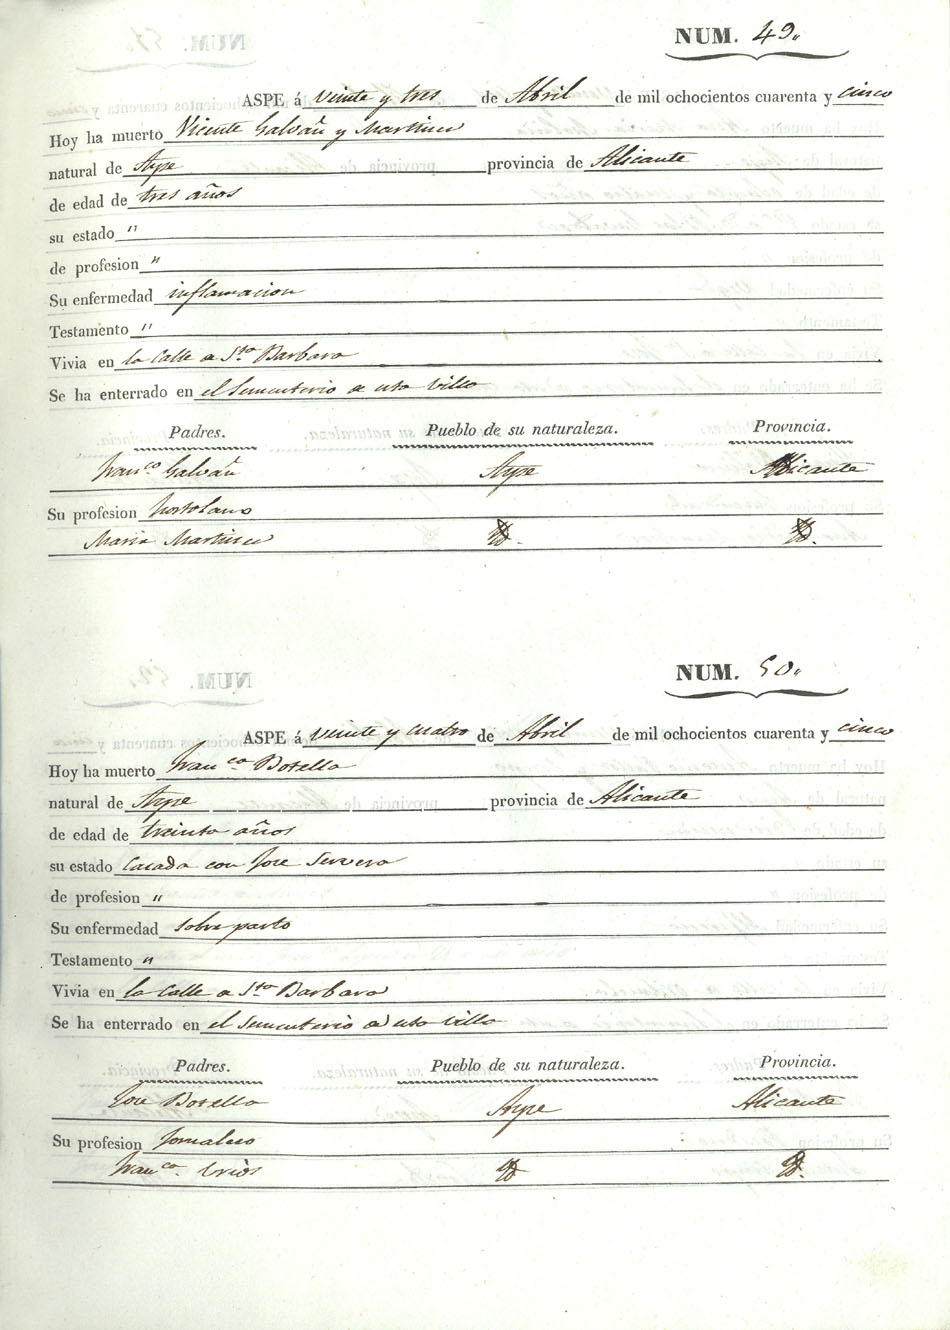 NUM. 49.
ASPE á veinte y tres de Abril de mil ochocientos cuarenta y cinco
Hoy ha muerto Vicente Galvañ y Martinez
natural de Aspe provincia de Alicante
de edad de tres años
su estado "
de profesion "
Su enfermedad inflamacion
Testamento "
Vivia en la Calle de Sta Barbara
Se ha enterrado en el Sementerio de esta villa
Padres. Pueblo de su naturaleza. Provincia.
Franco Galvañ Aspe Alicante
Su profesion hortolano
Maria Martinez
NUM. 50.
ASPE á veinte y cuatro de Abril de mil ochocientos cuarenta y cinco
Hoy ha muerto Franca Botella
natural de Aspe provincia de Alicante
de edad de treinta años
su estado Casada con Jose Servera
de profesion "
Su enfermedad sobre parto
Testamento "
Vivia en la Calle de Sta Barbara
Se ha enterrado en el Sementerio de esta villa
Padres. Pueblo de su naturaleza. Provincia.
Jose Botella Aspe Alicante
Su profesion Jornalero
Franca. Urios